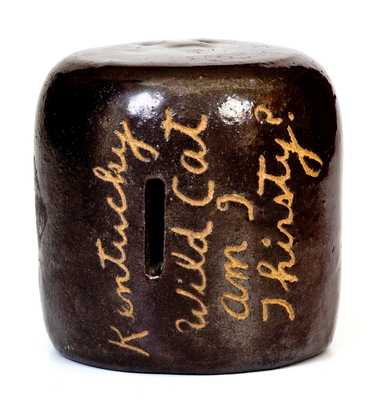 Kentucky
Wild Cat
am I
Thirsty?